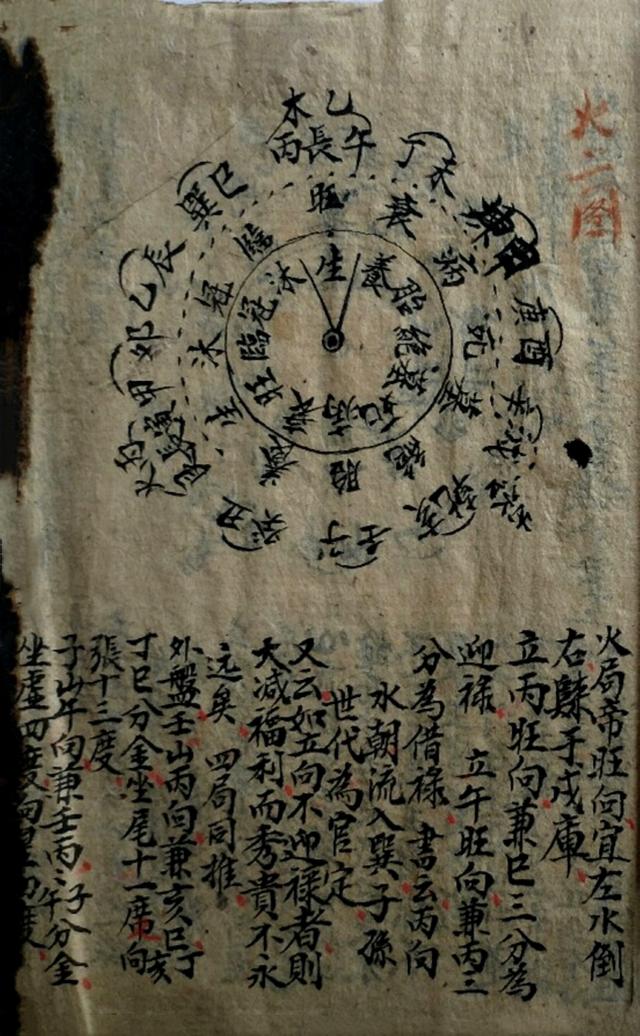 火二图
木乙
丙長午
丁未
坤申
庚酉
辛戌
壬子
癸丑
艮寅
甲卯
乙辰
巽巳
旺衰病死墓絕胎養生沐冠臨
生養胎絕墓死病衰旺臨冠沐
火局帝旺向宜左水倒
右歸于戌庫
立丙旺向兼巳三分為
迎禄 立午旺向兼丙三
分為借禄 書云丙向
水朝流入巽子孫
世代為官定
又云如立向不迎禄者則
大减福利而秀貴不永
远矣 四局同推
外盤壬山丙向兼亥巳丁亥
丁巳分金坐尾十一度向
張十三度
子山午向兼壬丙丙子丙午分金
坐虛四度向星四度